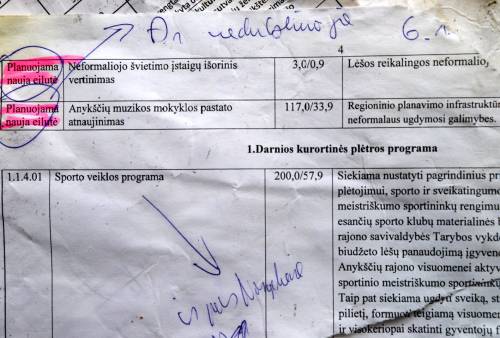 Ar nedubliuoja 6.1.
4
Planuojama nauja eilutė
Neformaliojo švietimo įstaigų išorinis
vertinimas
3,0/0,9
Lėšos reikalingos neformalio
Planuojama nauja eilutė
Anykščių muzikos mokyklos pastato
atnaujinimas
117,0/33,9
Regioninio planavimo infrastruktūr
neformalaus ugdymosi galimybes.
1.Darnios kurortinės plėtros programa
1.1.4.01
Sporto veiklos programa
200,0/57,9
Siekiama nustatyti pagrindinius pr
plėtojimui, sporto ir sveikatingumo
meistriškumo sportininkų rengimu
esančių sporto klubų materialinės b
rajono savivaldybės Tarybos vykdo
biudžeto lėšų panaudojimą įgyven
Anykščių rajono visuomenei aktyv
sportinio meistriškumo sportininkų
Taip pat siekiama ugdyti sveiką, str
pilietį, formuoti teigiamą visuomen
ir visokeriopai skatinti gyventojų f